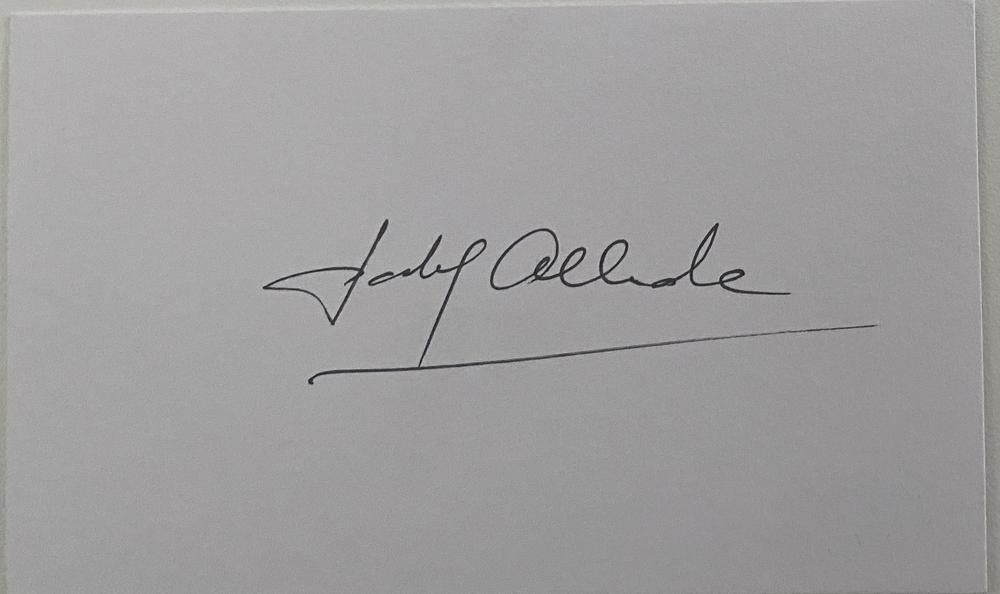 Isabel Allende